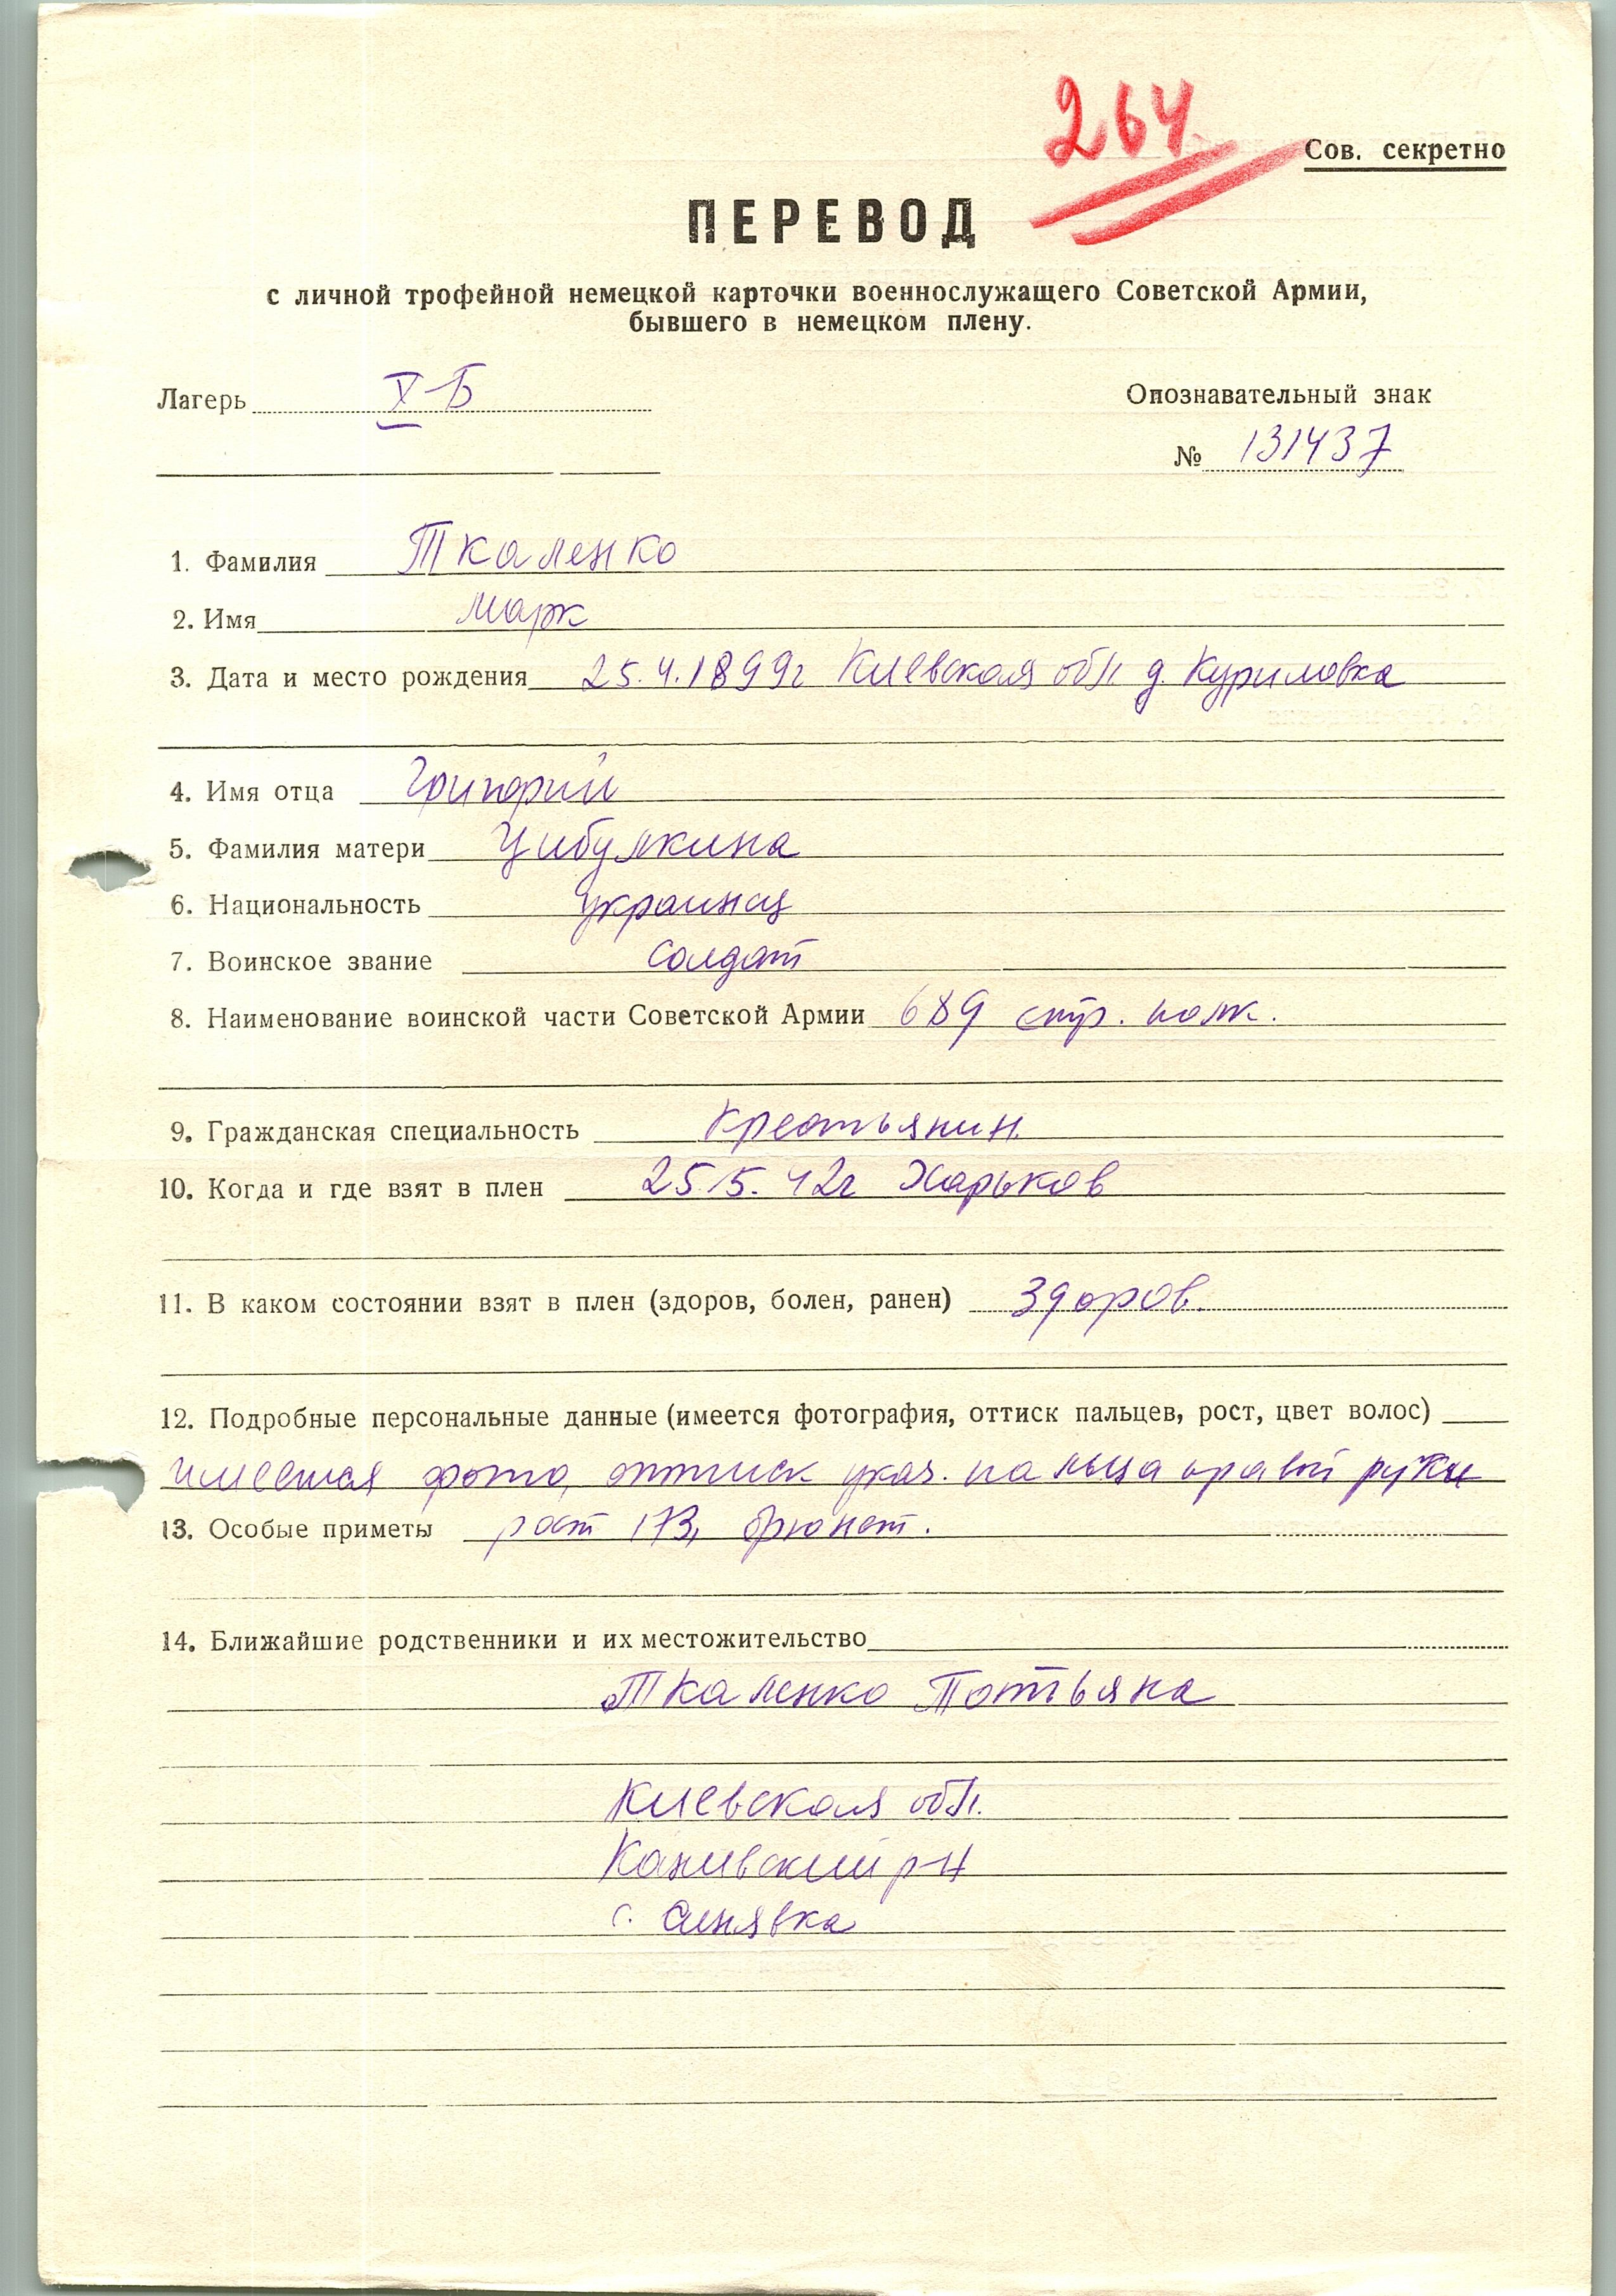 264
Сов. секретно
ПЕРЕВОД
с личной трофейной немецкой карточки военнослужащего Советской Армии,
бывшего в немецком плену.
Лагерь X-Б
Опознавательный знак
№ 131437
1. Фамилия Ткаленко
2. Имя Марк
3. Дата и место рождения 25.4.1899г Киевская обл д. Куриловка
4. Имя отца Григорий
5. Фамилия матери Цибулкина
6. Национальность украинец
7. Воинское звание солдат
8. Наименование воинской части Советской Армии 689 стр. полк.
9. Гражданская специальность крестьянин.
10. Когда и где взят в плен 25.5.42г Харьков
11. В каком состоянии взят в плен (здоров, болен, ранен) здоров.
12. Подробные персональные данные (имеется фотография, оттиск пальцев, рост, цвет волос)
имеется фото, оттиск указ. пальца правой руки
13. Особые приметы рост 173, брюнет.
14. Ближайшие родственники и их местожительство
Ткаленко Татьяна
Киевская обл.
Каневский р-н
с. Синявка